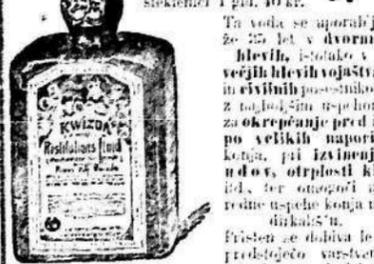 steklenici 1 gld. 40 kr.
KWIZDA
Restitutions fluid
Ta voda se uporablj
že 35 let v dvorni
hlevih, istotako v
večjih hlevih vojaštv
in civilnih posestniko
z najboljšim uspehom
za okrepčanje pred i
po velikih napori
konja, pri izvinenj
udov, otrplosti k
itd., ter omogoči
redne uspehe konja
dirkališ
Pristen se dobiva le
predstoječo varstve